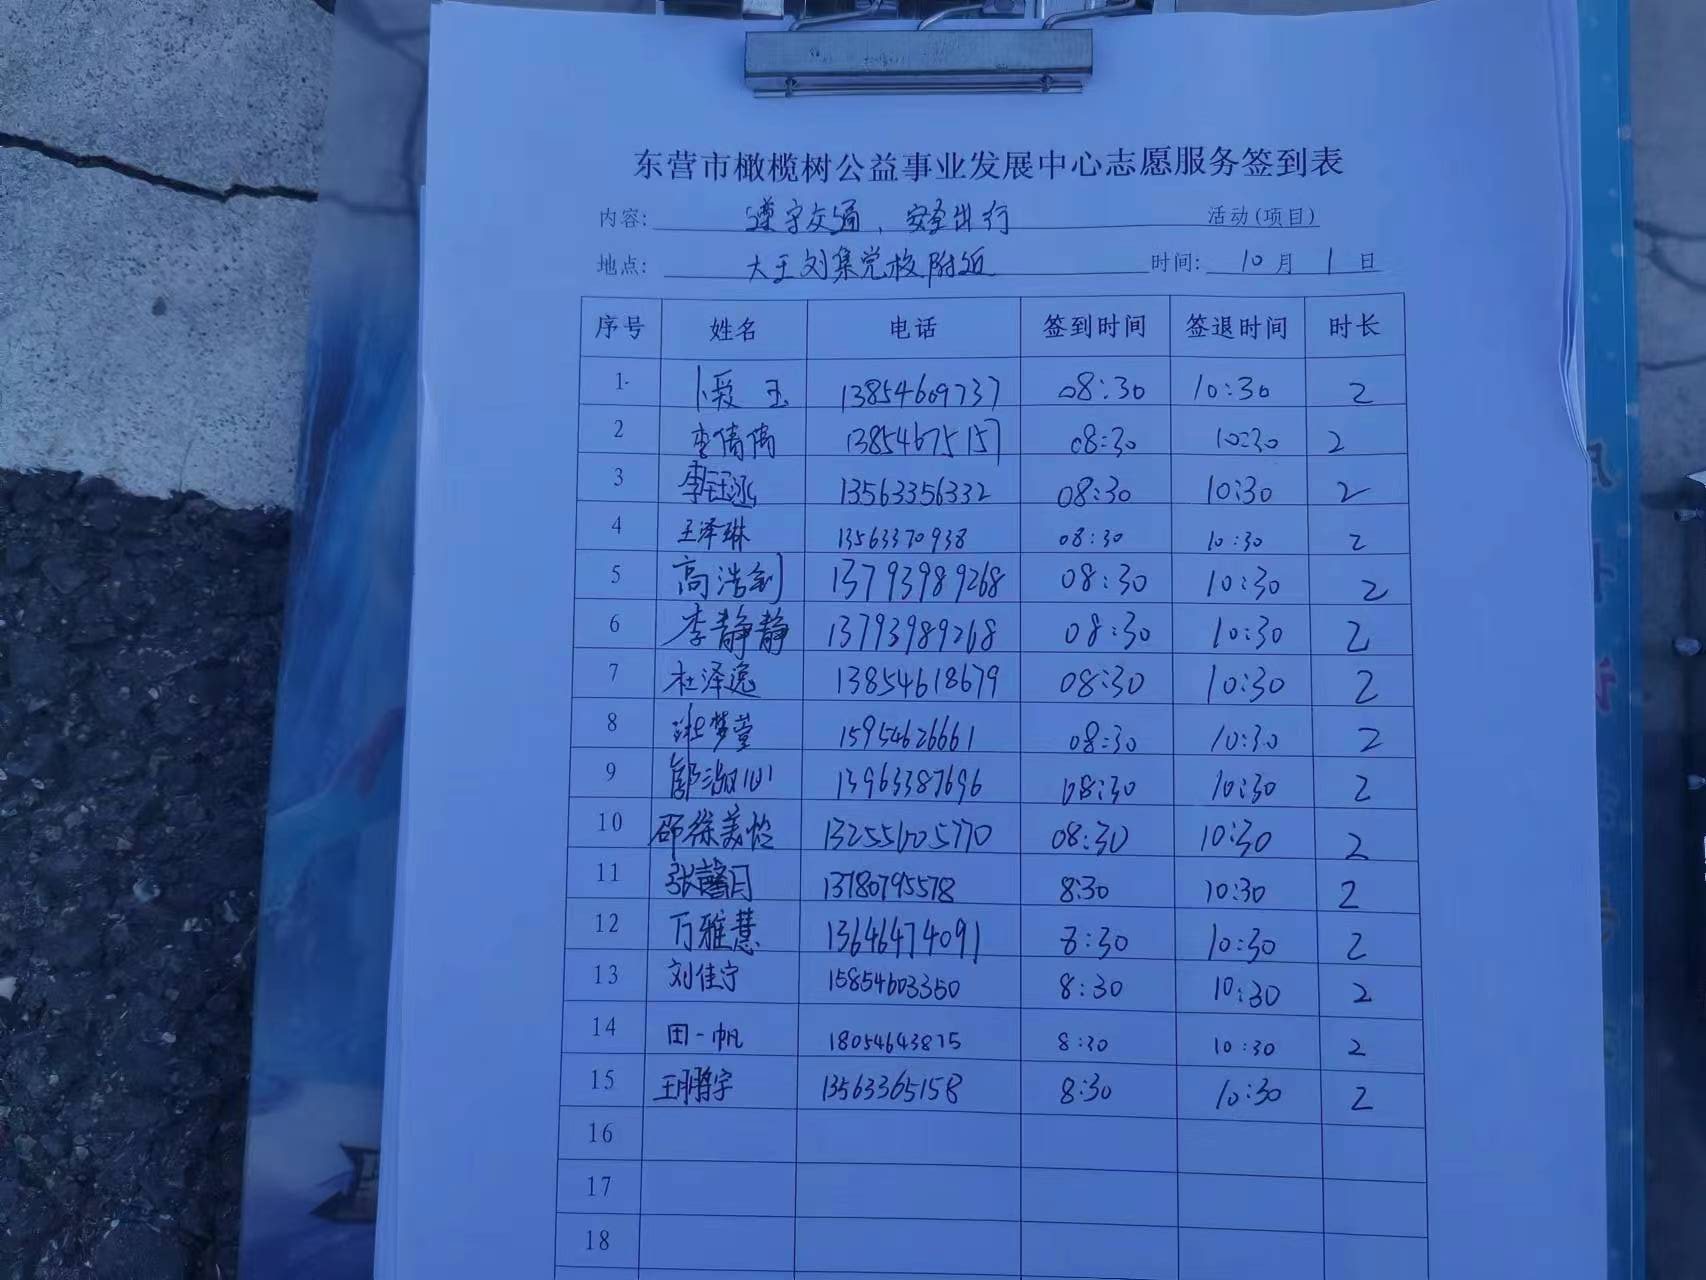 东营市橄榄树公益事业发展中心志愿服务签到表
内容: 遵守交通，安全出行 活动(项目)
地点: 大王刘集党校附近 时间: 10月 1日
序号 姓名 电话 签到时间 签退时间 时长
1 卜爱玉 13854609737 08:30 10:30 2
2 李倩倩 13854675157 08:30 10:30 2
3 李钰泳 13563356332 08:30 10:30 2
4 王泽琳 13563370938 08:30 10:30 2
5 高浩钊 13793989268 08:30 10:30 2
6 李静静 13793989268 08:30 10:30 2
7 杜泽逸 13854618679 08:30 10:30 2
8 梦萱 15954626661 08:30 10:30 2
9 13963387696 08:30 10:30 2
10 邵徐美怡 13255605770 08:30 10:30 2
11 张馨月 13780795578 8:30 10:30 2
12 万雅慧 13646474091 8:30 10:30 2
13 刘佳宁 15854603350 8:30 10:30 2
14 田一帆 18054643875 8:30 10:30 2
15 王鹏宇 13563365158 8:30 10:30 2
16
17
18